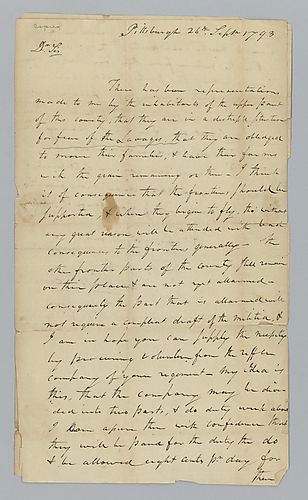 Pittsburgh 26th Septr 1793
Dr Sir
There has been representations
made to me by the inhabitants of the upper part
of this county, that they are in a situation
for fear of the Savages, that they are obliged
to move their families, & leave their farms
with the grain remaining on them - I think
it of consequence that the frontiers should be
supported & when they begin to fly, tho without
any great reason will be attended with bad
consequences to the frontier generally - the
other frontier parts of the county still remain
on their places & are not yet alarmed -
consequently the part that is alarmed will
not require a compleat draft of the militia, &
I am in hope you can supply the necessity
by procuring volunteers from the rifle
company of your regiment - My idea is
this, that the company may be divi-
ded into two parts, & do duty week about
I can assure them with confidence that
they will be paid for the duty they do
& be allowed eight cents pr day for
their